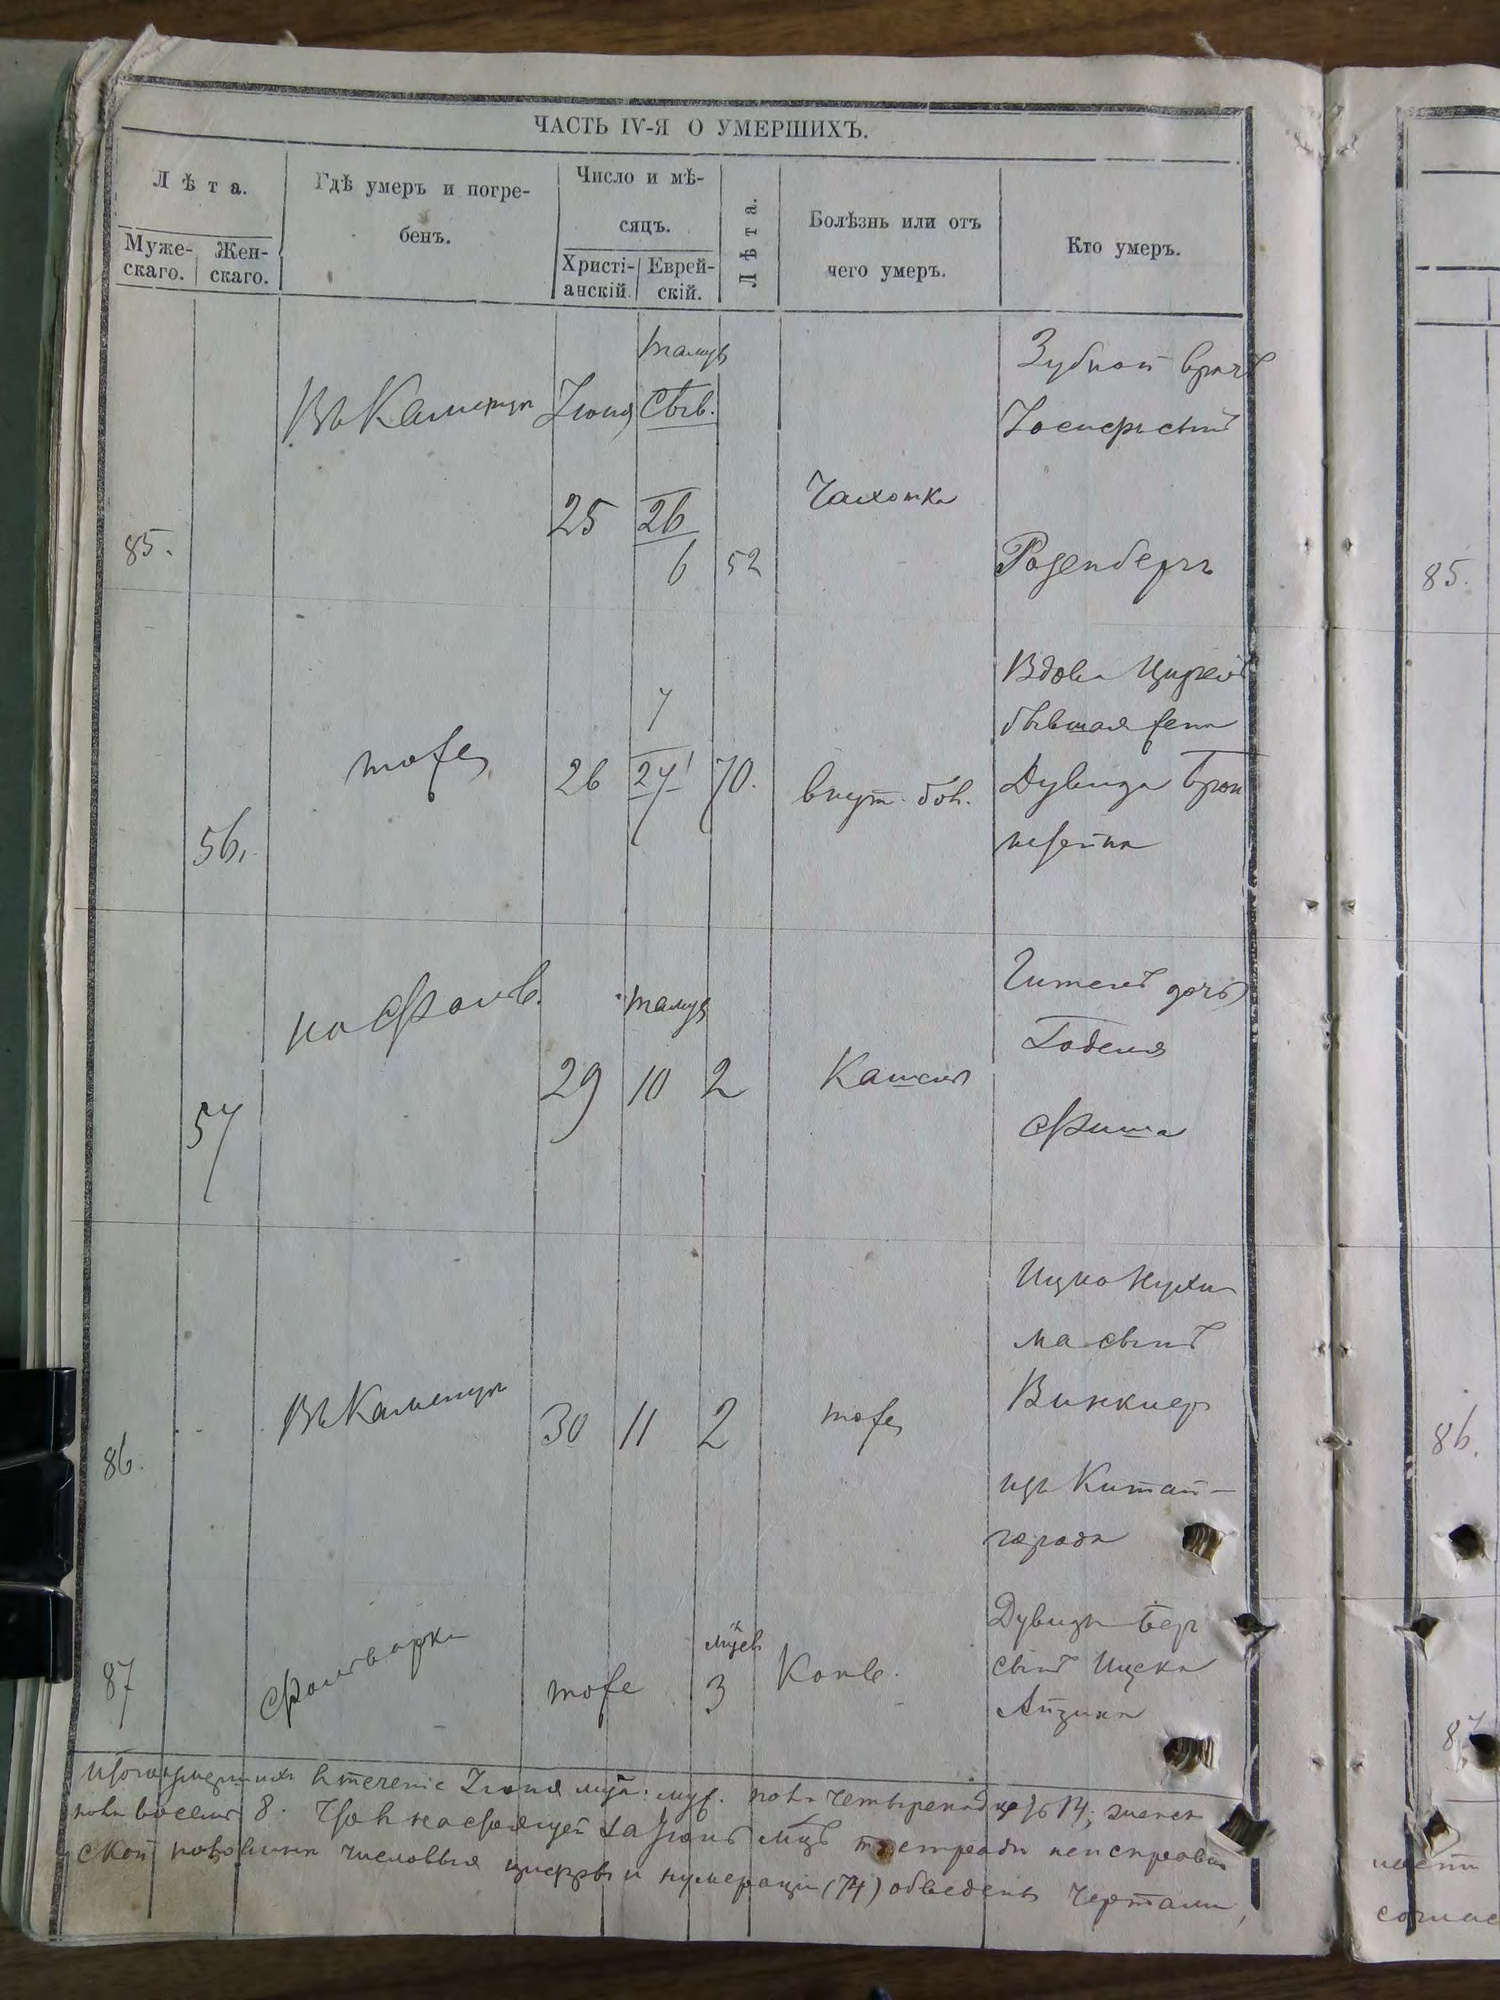 ЧАСТЬ IV-Я О УМЕРШИХЪ.
Лѣта.
Муже-
скаго.
Жен-
скаго.
Гдѣ умеръ и погре-
бенъ.
Число и мѣ-
сяцъ.
Христі-
анскій.
Еврей-
скій.
Лѣта.
Болѣзнь или отъ
чего умеръ.
Кто умеръ.
85.
Въ Каменцѣ
Іюня
25
тамуз
Сыв.
26
6
52
Чахотка
Зубной врачъ
Іосифъ сынъ
Розенбергъ
85.
56.
тоже
26
7
27
70.
внут. бол.
Вдова
бывшая жена
Дувида Брон
штейна
57
на Фольв.
29
тамуз
10
2
Кашель
Гитель дочь
Годеля
Фиша
86.
Въ Каменцѣ
30
11
2
тоже
Ицко Нухи
ма сынъ
Винкнер
изъ Китай-
города
86.
87
Фольварки
тоже
мѣсев
3
Конв.
Дувидъ Бер
сынъ Ицска
Айзика
87
Итого умершихъ в теченіе Іюня мца: муж. пола четырнадцать 14, женск
пола восемь 8. Что в настоящей за Іюнь мцъ тетради
ской половины числовыя цифры и нумерація (74) обведены чертами,
соглас